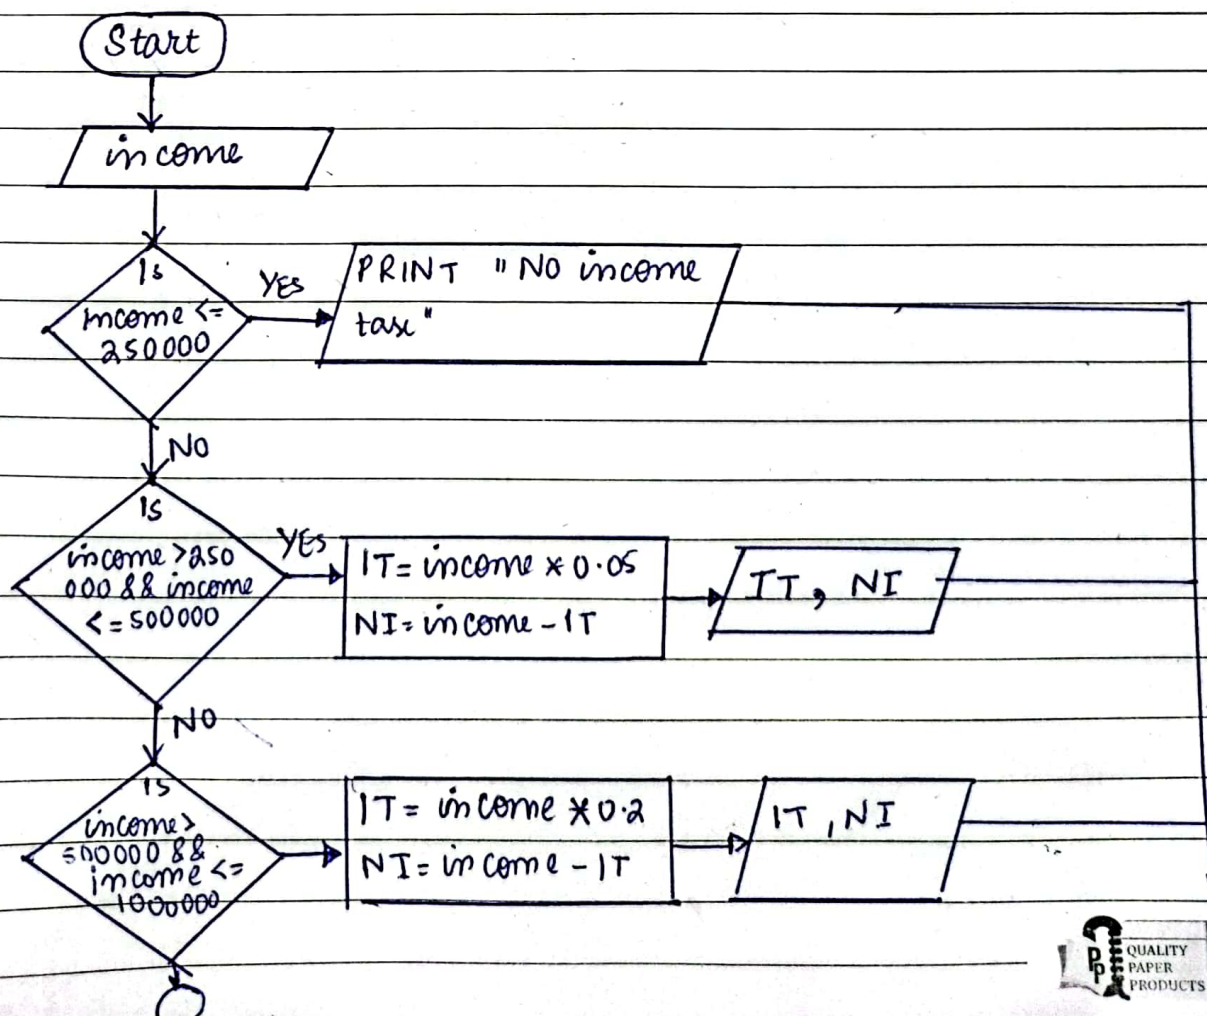 Start
income
Is
income <=
250000
YES
PRINT "NO income
tax"
NO
Is
income >250
000 && income
<= 500000
YES
IT= income * 0.05
NI= income - IT
IT, NI
NO
Is
income >
500000 &&
income <=
1000000
IT= income * 0.2
NI= income - IT
IT, NI
PP
QUALITY
PAPER
PRODUCTS